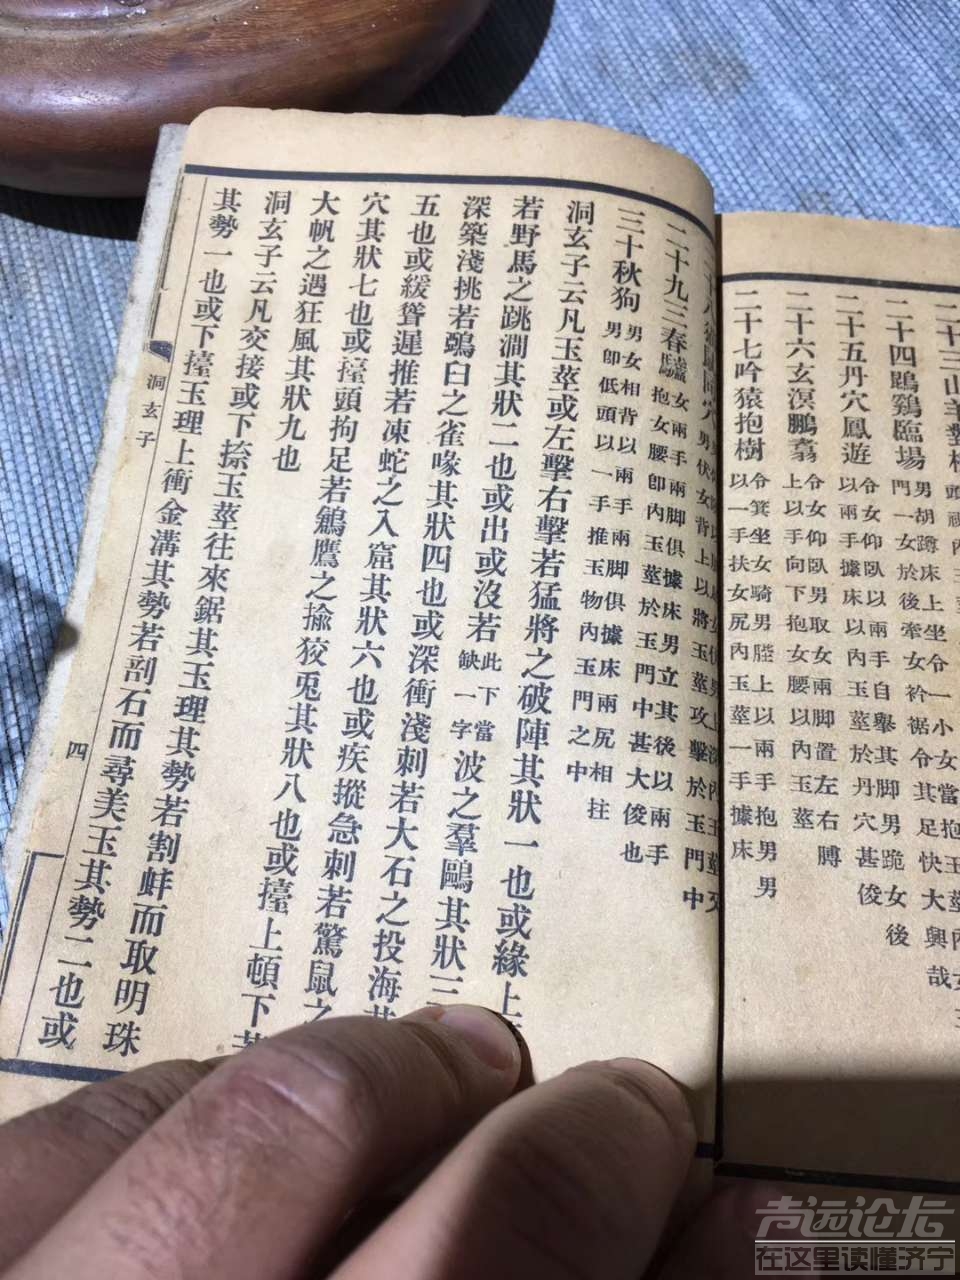 二十三山羊對
二十四鶤鷄臨場
男胡蹲床上坐令一小女當抱玉莖內
門一女於後牽衿裾令其足快大興哉
二十五丹穴鳳遊
令女仰臥以兩手自舉其脚男跪女後
以兩手據床以內玉莖於丹穴甚俊
二十六玄溟鵬翥
令女仰臥男取女兩脚置左右膊
上以手向下抱女腰以內玉莖
二十七吟猿抱樹
令箕坐女騎男䏶上以兩手抱男男
以一手扶女尻內玉莖一手據床
同穴
男伏女背上以將玉莖攻擊於玉門中
二十九三春驢
女兩手兩脚俱據床男立其後以兩手
抱女腰卽內玉莖於玉門中甚大俊也
三十秋狗
男女相背以兩手兩脚俱據床兩尻相拄
男卽低頭以一手推玉物內玉門之中
洞玄子云凡玉莖或左擊右擊若猛將之破陣其狀一也或緣上
若野馬之跳澗其狀二也或出或沒若此下當缺一字波之羣鷗其狀三
深築淺挑若鵶臼之雀喙其狀四也或深衝淺刺若大石之投海其
五也或緩聳遲推若凍蛇之入窟其狀六也或疾摐急刺若驚鼠之
穴其狀七也或擡頭拘足若鶬鷹之揄狡兎其狀八也或擡上頓下若
大帆之遇狂風其狀九也
洞玄子云凡交接或下捺玉莖往來鋸其玉理其勢若割蚌而取明珠
其勢一也或下擡玉理上衝金溝其勢若剖石而尋美玉其勢二也或
洞玄子
四
声远论坛
在这里读懂济宁